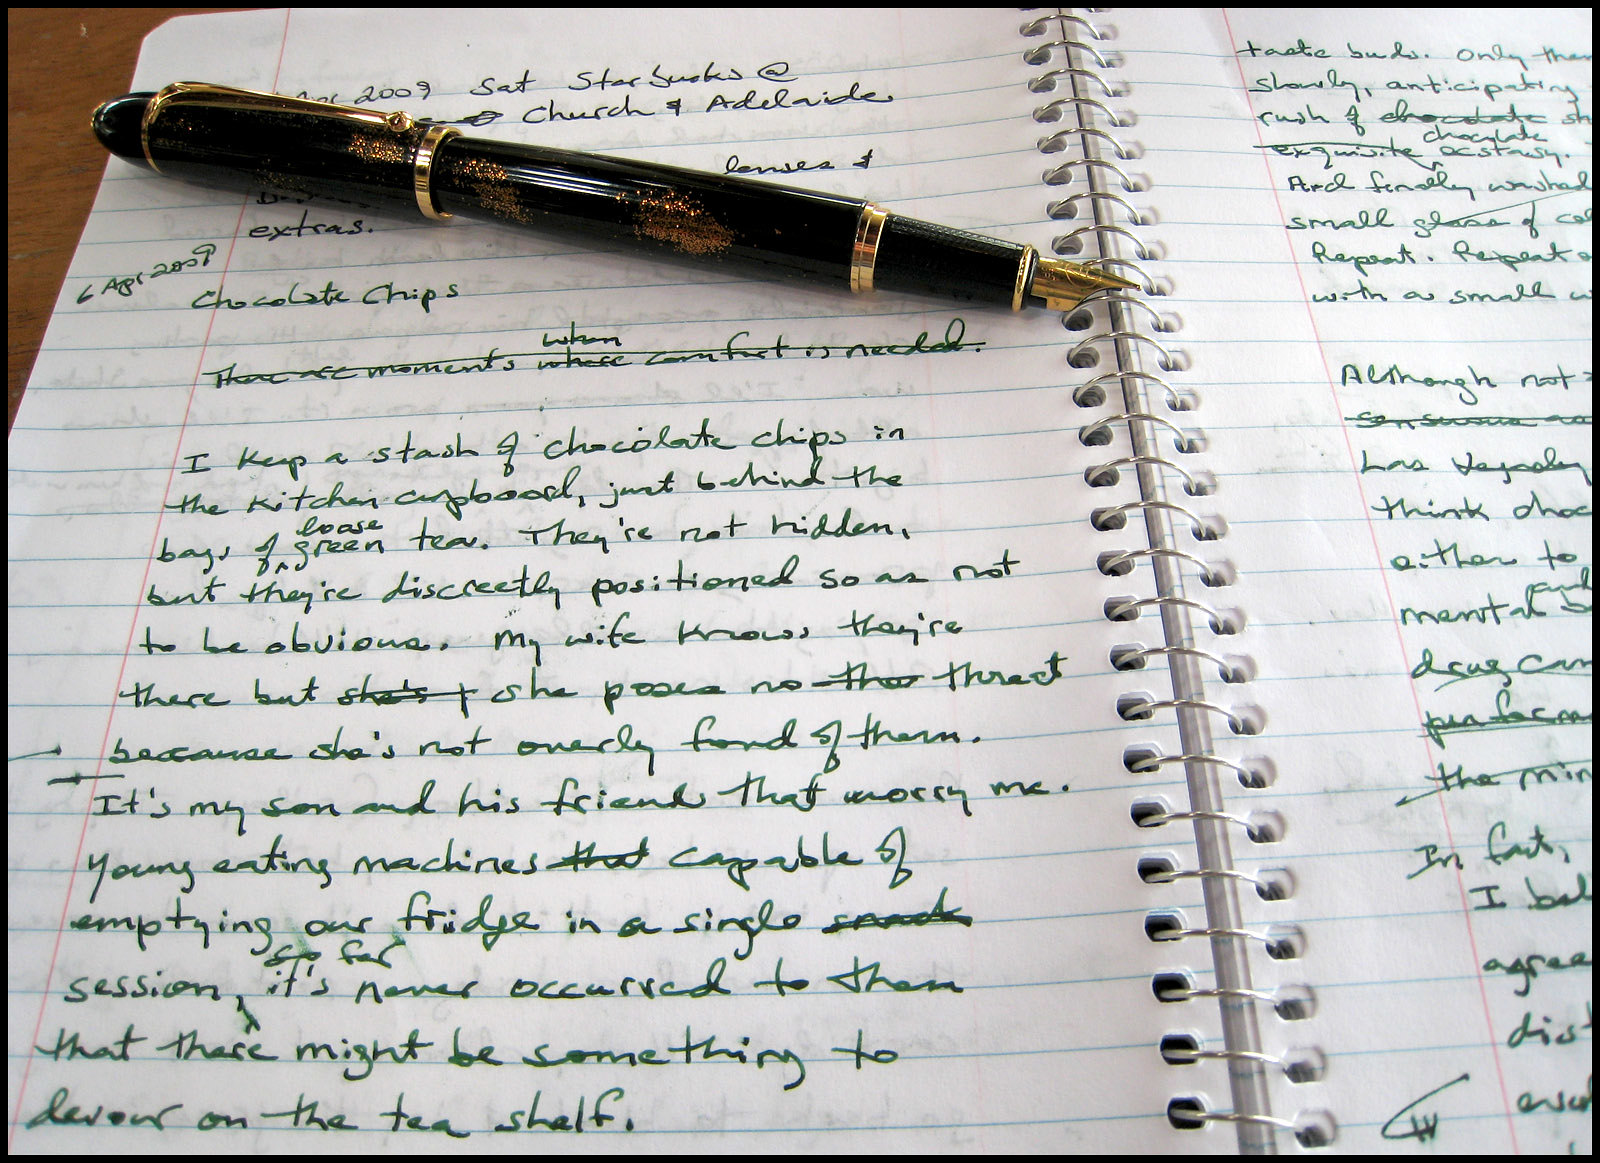 Apr 2009 Sat Starbucks @
Church & Adelaide
lenses &
extras.
6 Apr 2009
Chocolate Chips
when
There are moments where comfort is needed.
I keep a stash of chocolate chips in
the kitchen cupboard, just behind the
loose
bags of green tea. They're not hidden,
but they're discreetly positioned so as not
to be obvious. My wife knows they're
there but she's she poses no thr threat
because she's not overly fond of them.
It's my son and his friends that worry me.
Young eating machines that capable of
emptying our fridge in a single snack
so far
session, it's never occurred to them
that there might be something to
devour on the tea shelf.
taste buds. Only then
slowly, anticipating
rush of chocolate
chocolate
exquisite ecstasy.
And finally washed
small glass of
Repeat. Repeat
with a small
Although not
Las Vegas
think choc
either to
and
mental
drug
the
In fact,
I
agree